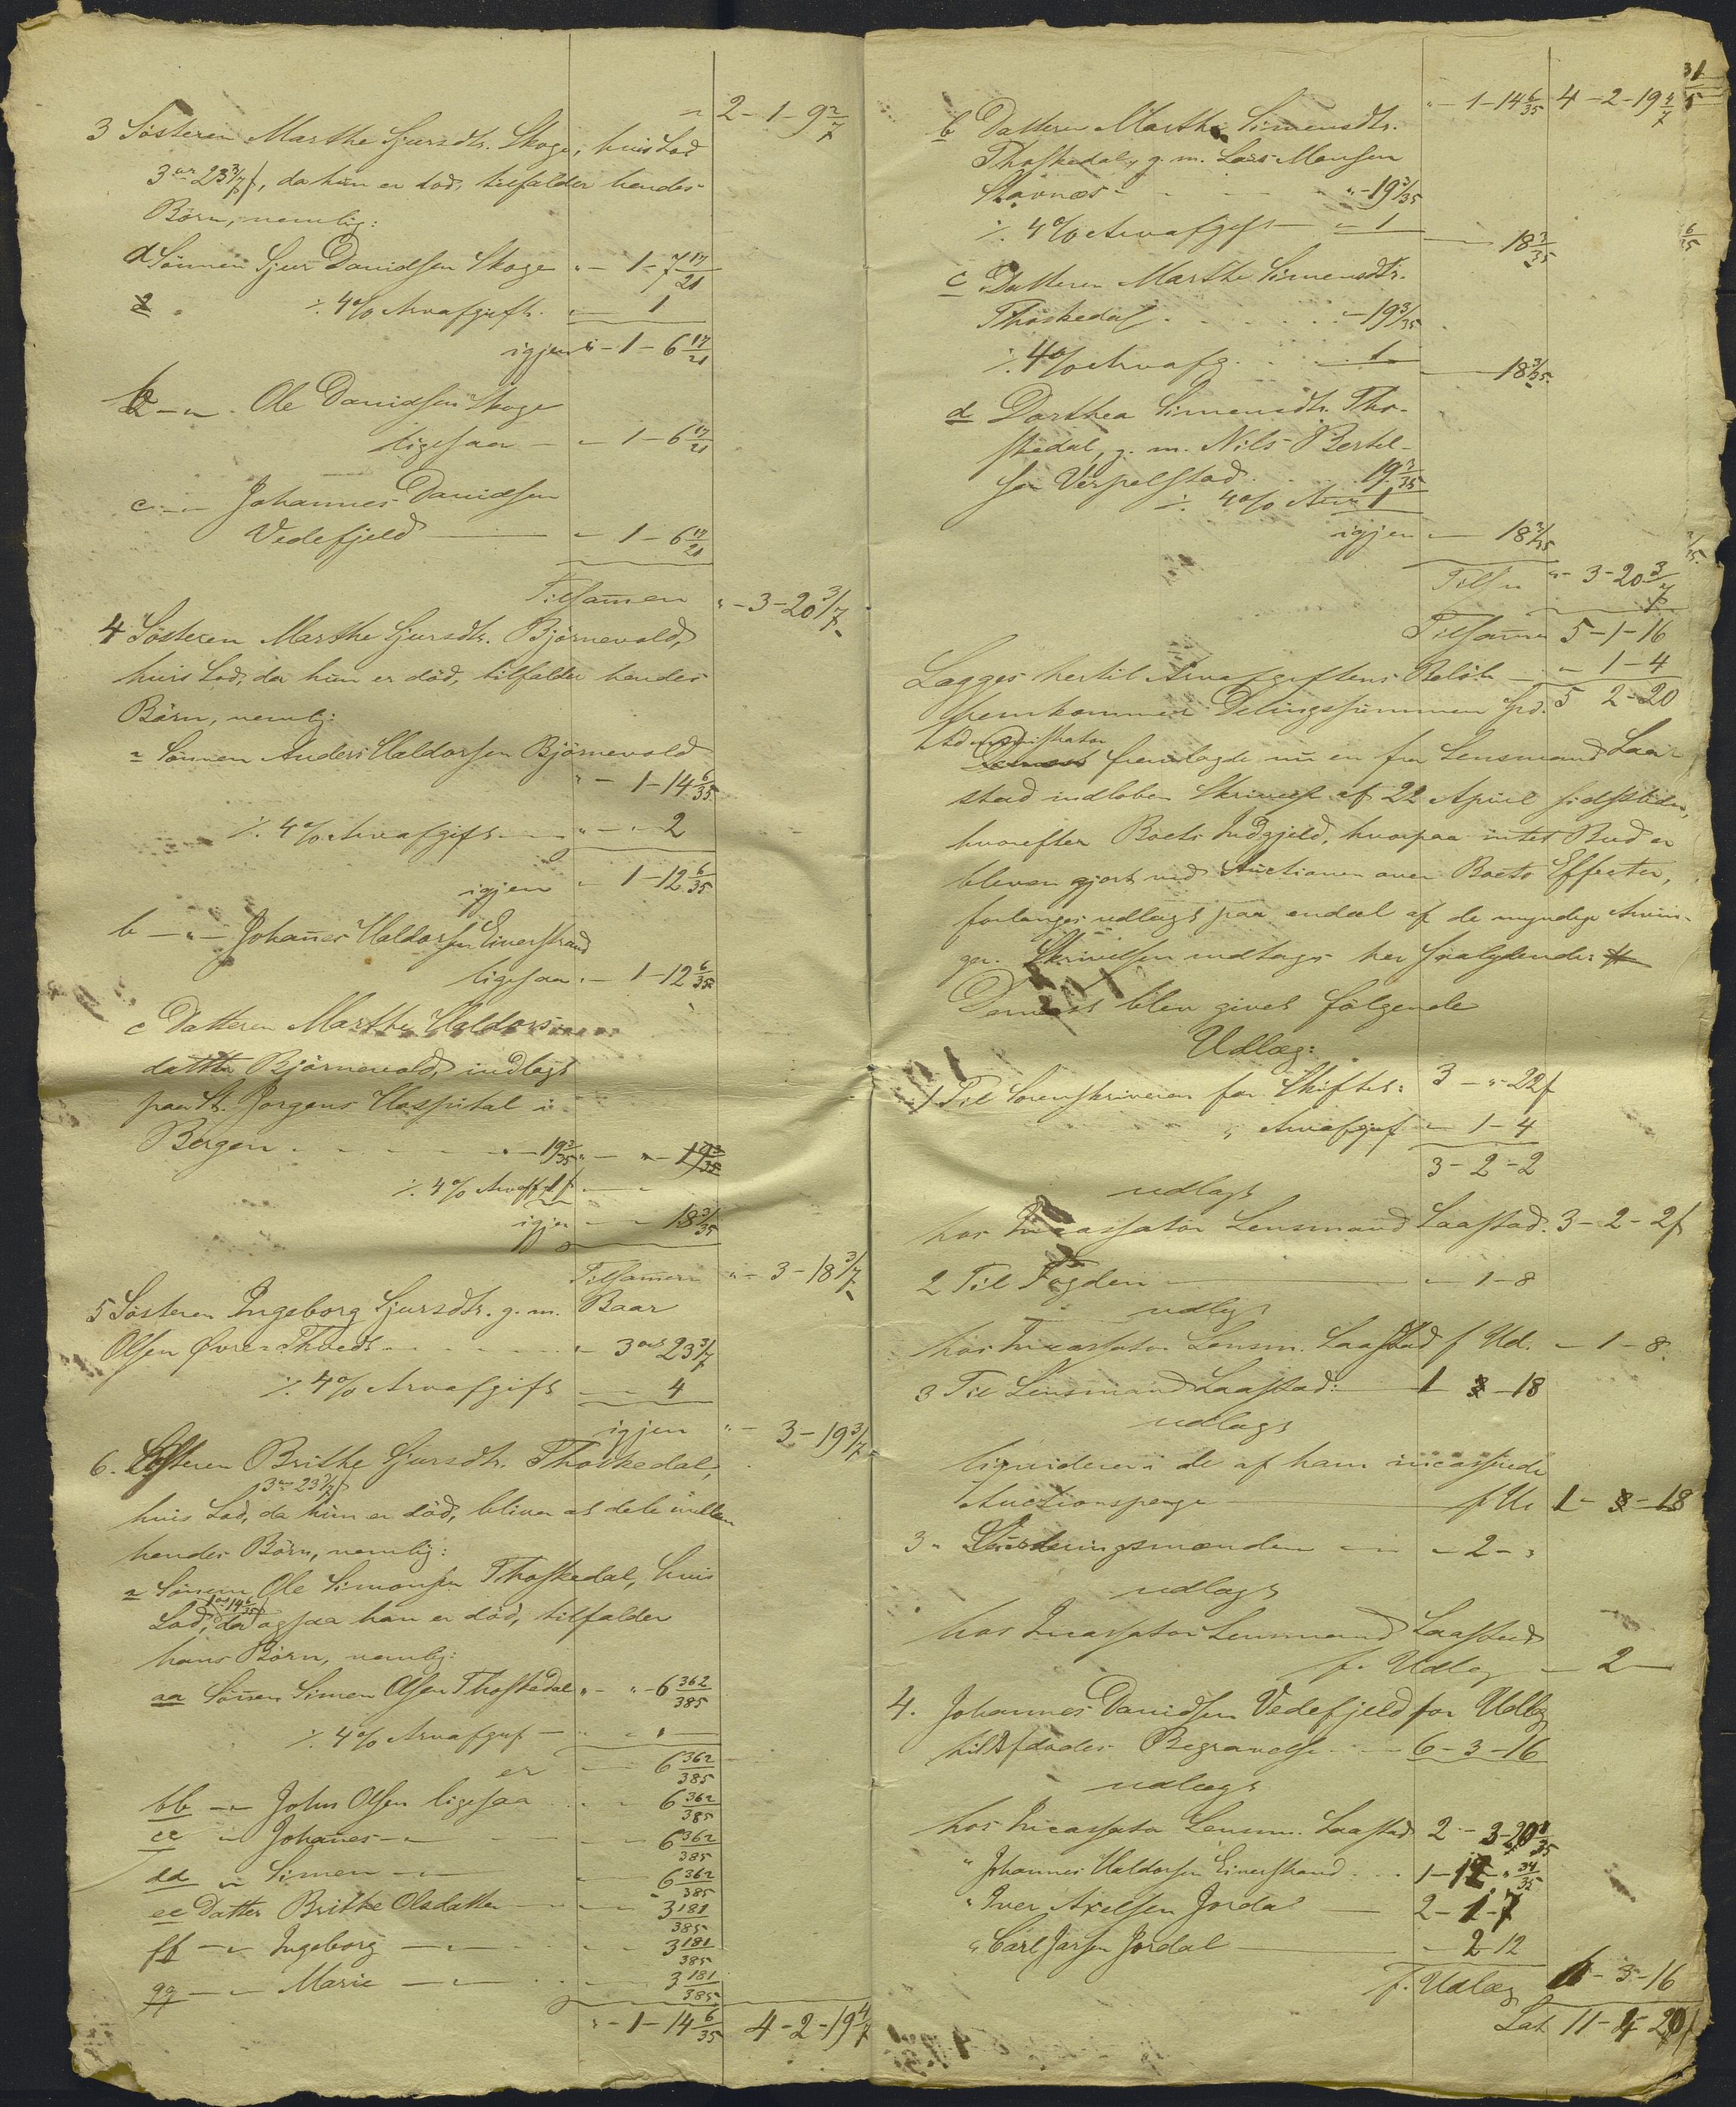 " 2 - 1 - 9 2/7
3 Søsteren Marthe Sjursdtr. Skoge, hvis Lod
3 ort 23 3/7 ß, da hun er död, tilfalder hendes
Börn, nemlig:
a Sönnen Sjur Davidsen Skoge " - 1 - 7 17/21
÷ 4 % Arveafgift - 1
igjen " - 1 - 6 17/21
b - " - Ole Davidsen Skoge
ligesaa - " - 1 - 6 17/21
c - " - Johannes Davidsen
Vedefjeld - " - 1 - 6 17/21
Tilsamen " - 3 - 20 3/7
4 Søsteren Marthe Sjursdtr. Björnevold,
hvis Lod, da hun er död, tilfalder hendes
Börn, nemlig:
a Sönnen Anders Haldorsen Björnevold
" - 1 - 14 6/35
÷ 4 % Arveafgift - " - " - 2
igjen " - 1 - 12 6/35
b - " - Johanes Haldorsen Einerstrand
ligesaa " - 1 - 12 6/35
c Datteren Marthe Haldors-
datter Björnevold, indlagt
paa St. Jørgens Hospital i
Bergen - 19 3/35 " - " - 19 3/35
÷ 4 % Arveafg. 1 ß
igjen " - " - 18 3/35
Tilsamen " - 3 - 18 3/7
5 Søsteren Ingeborg Sjursdtr. g. m. Baar
Olsen Øvre-Thvedt - 3 ort 23 3/7
÷ 4 % Arveafgift - 4
igjen " - 3 - 19 3/7
6. Søsteren Brithe Sjursdtr. Thoskedal,
3 ort 23 3/7 ß
hvis Lod, da hun er död, bliver at dele imellem
hendes Börn, nemlig:
a Sönnen Ole Simonsen Thoskedal, hvis
1 ort 14 6/35 ß
Lod, da ogsaa han er död, tilfalder
hans Börn, nemlig:
aa Sönnen Simen Olsen Thoskedal " - " - 6 362/385
÷ 4 % Arveafgift - " - " -
er - 6 362/385
bb - " - John Olsen ligesaa - 6 362/385
cc " Johanes - " - 6 362/385
dd " Simen - " - 6 362/385
ee Datter Brithe Olsdatter - 3 181/385
ff - " - Ingeborg - " - 3 181/385
gg - " - Marie - " - 3 181/385
" - 1 - 14 6/35 4 - 2 - 19 4/7
" - 1 - 14 6/35 4 - 2 - 19 4/7
b Datteren Marthe Simensdtr.
Thoskedal, g. m. Lars Monsen
Stavnæs - " - 19 3/35
÷ 4 % Arveafgift - " - 1 - 18 3/35
c Datteren Marthe Simensdtr.
Thoskedal - 19 3/35
÷ 4 % Arveafg. - 1 - 18 3/35
d Dorthea Simensdtr. Tho-
skedal, g. m. Nils Bertel-
sen Vespelstad - 19 3/35
÷ 4 % Arv 1
igjen - 18 3/35
Tilsn " - 3 - 20 3/7
Tilsamen 5 - 1 - 16
Lægges hertil Arveafgiftens Beløb - " - 1 - 4
fremkommer Delingssummen Spd. 5 2 - 20
Administrator
fremlagde nu en fra Lensmand Laa-
stad indløben Skrivelse af 22 April sidstleden,
hvorefter Boets Indgjeld, hvorpaa intet Bud er
bleven gjort ved Auctionen over Boets Effecter,
forlanges udlagt paa endel af de myndige Arvin-
ger. Skrivelsen indtages her saalydende:
Dernæst blev givet følgende
Udlæg:
1 Til Sorenskriveren for Skiftet: 3 - " - 22 ß
" Arveafgift - 1 - 4
3 - 2 - 2
udlagt
hos Incassator Lensmand Laastad. 3 - 2 - 2 ß
2 Til Fogden - " - 1 - 8
udlagt
hos Incassator Lensm. Laastad f Ud. - 1 - 8
3 Til Lensmand Laastad: 1 - 18
udlagt
liqviderer i de af ham incasserede
Auctionspenge - f Ud 1 - 18
3 " Vurderingsmændene - " - 2 - "
udlagt
hos Incassator Lensmand Laastad
f. Udlæg - 2 -
4. Johannes Davidsen Vedefjeld for Udlæg
til Afdødes Begravelse - 6 - 3 - 16
udlægt
hos Incassator Lensm. Laastad 2 - 3 - 20 1/35
" Johannes Haldorsen Einerstrand 1 - 12 34/35
" Iver Axelsen Jordal - 2 - 1 - 7
" Carl Jarsen Jordal - " 2 12
f. Udlæg 6 - 3 - 16
Lat. 11 - 4 20 ß